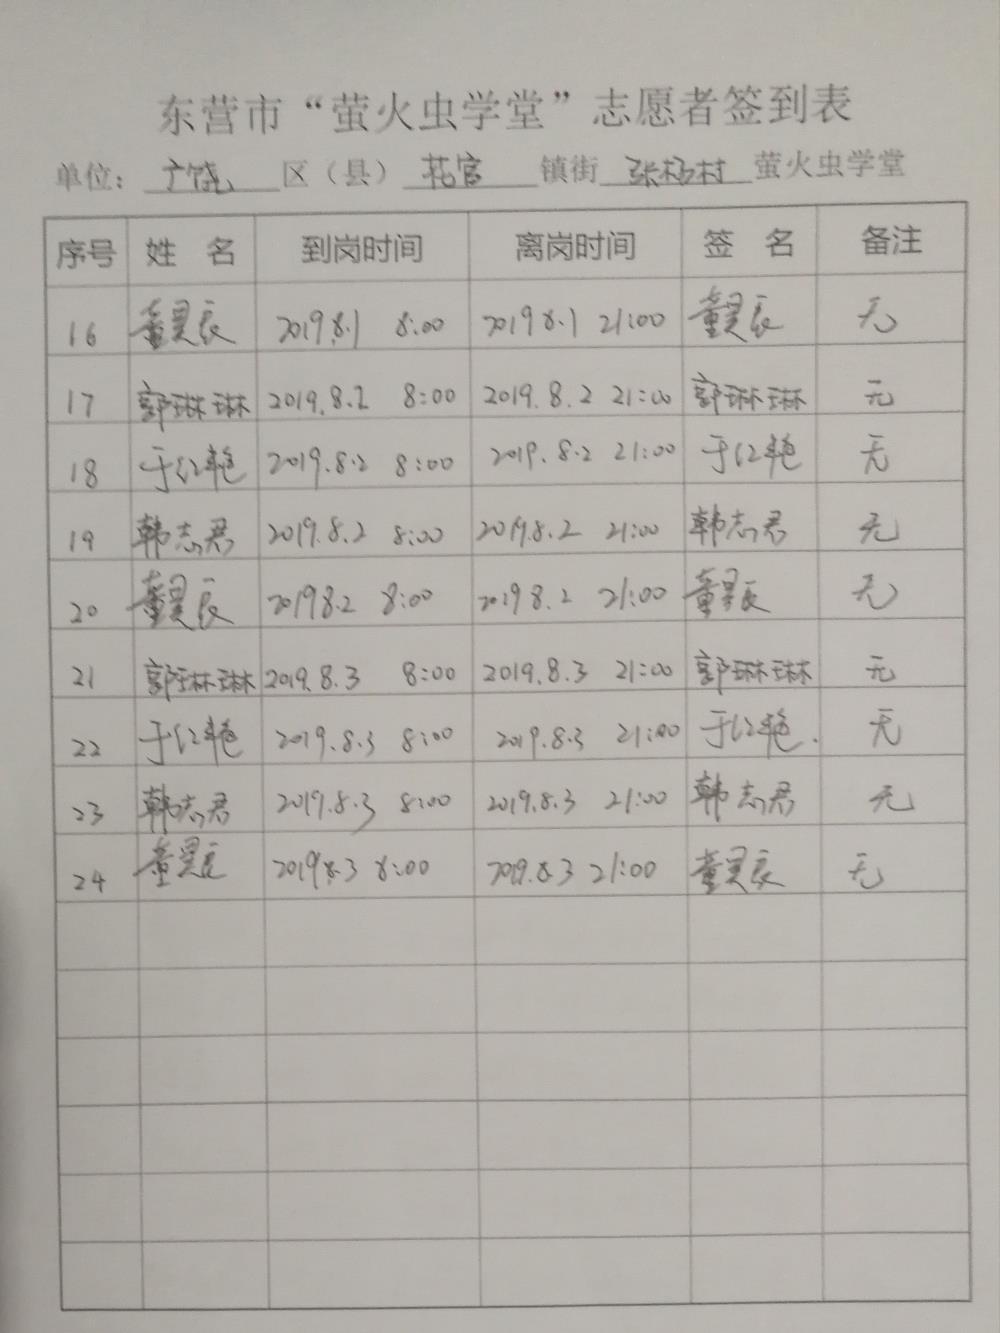 东营市“萤火虫学堂”志愿者签到表
单位：广饶区（县）花官镇街张杨村萤火虫学堂
序号 姓 名 到岗时间 离岗时间 签 名 备注
16 董昊辰 2019.8.1 8:00 2019 8.1 21:00 董昊辰 无
17 郭琳琳 2019.8.2 8:00 2019.8.2 21:00 郭琳琳 无
18 于红艳 2019.8.2 8:00 2019.8.2 21:00 于红艳 无
19 韩志君 2019.8.2 8:00 2019.8.2 21:00 韩志君 无
20 董昊辰 2019 8.2 8:00 2019 8.2 21:00 董昊辰 无
21 郭琳琳 2019.8.3 8:00 2019.8.3 21:00 郭琳琳 无
22 于红艳 2019.8.3 8:00 2019.8.3 21:00 于红艳. 无
23 韩志君 2019.8.3 8:00 2019.8.3 21:00 韩志君 无
24 董昊辰 2019.8.3 8:00 2019.8.3 21:00 董昊辰 无